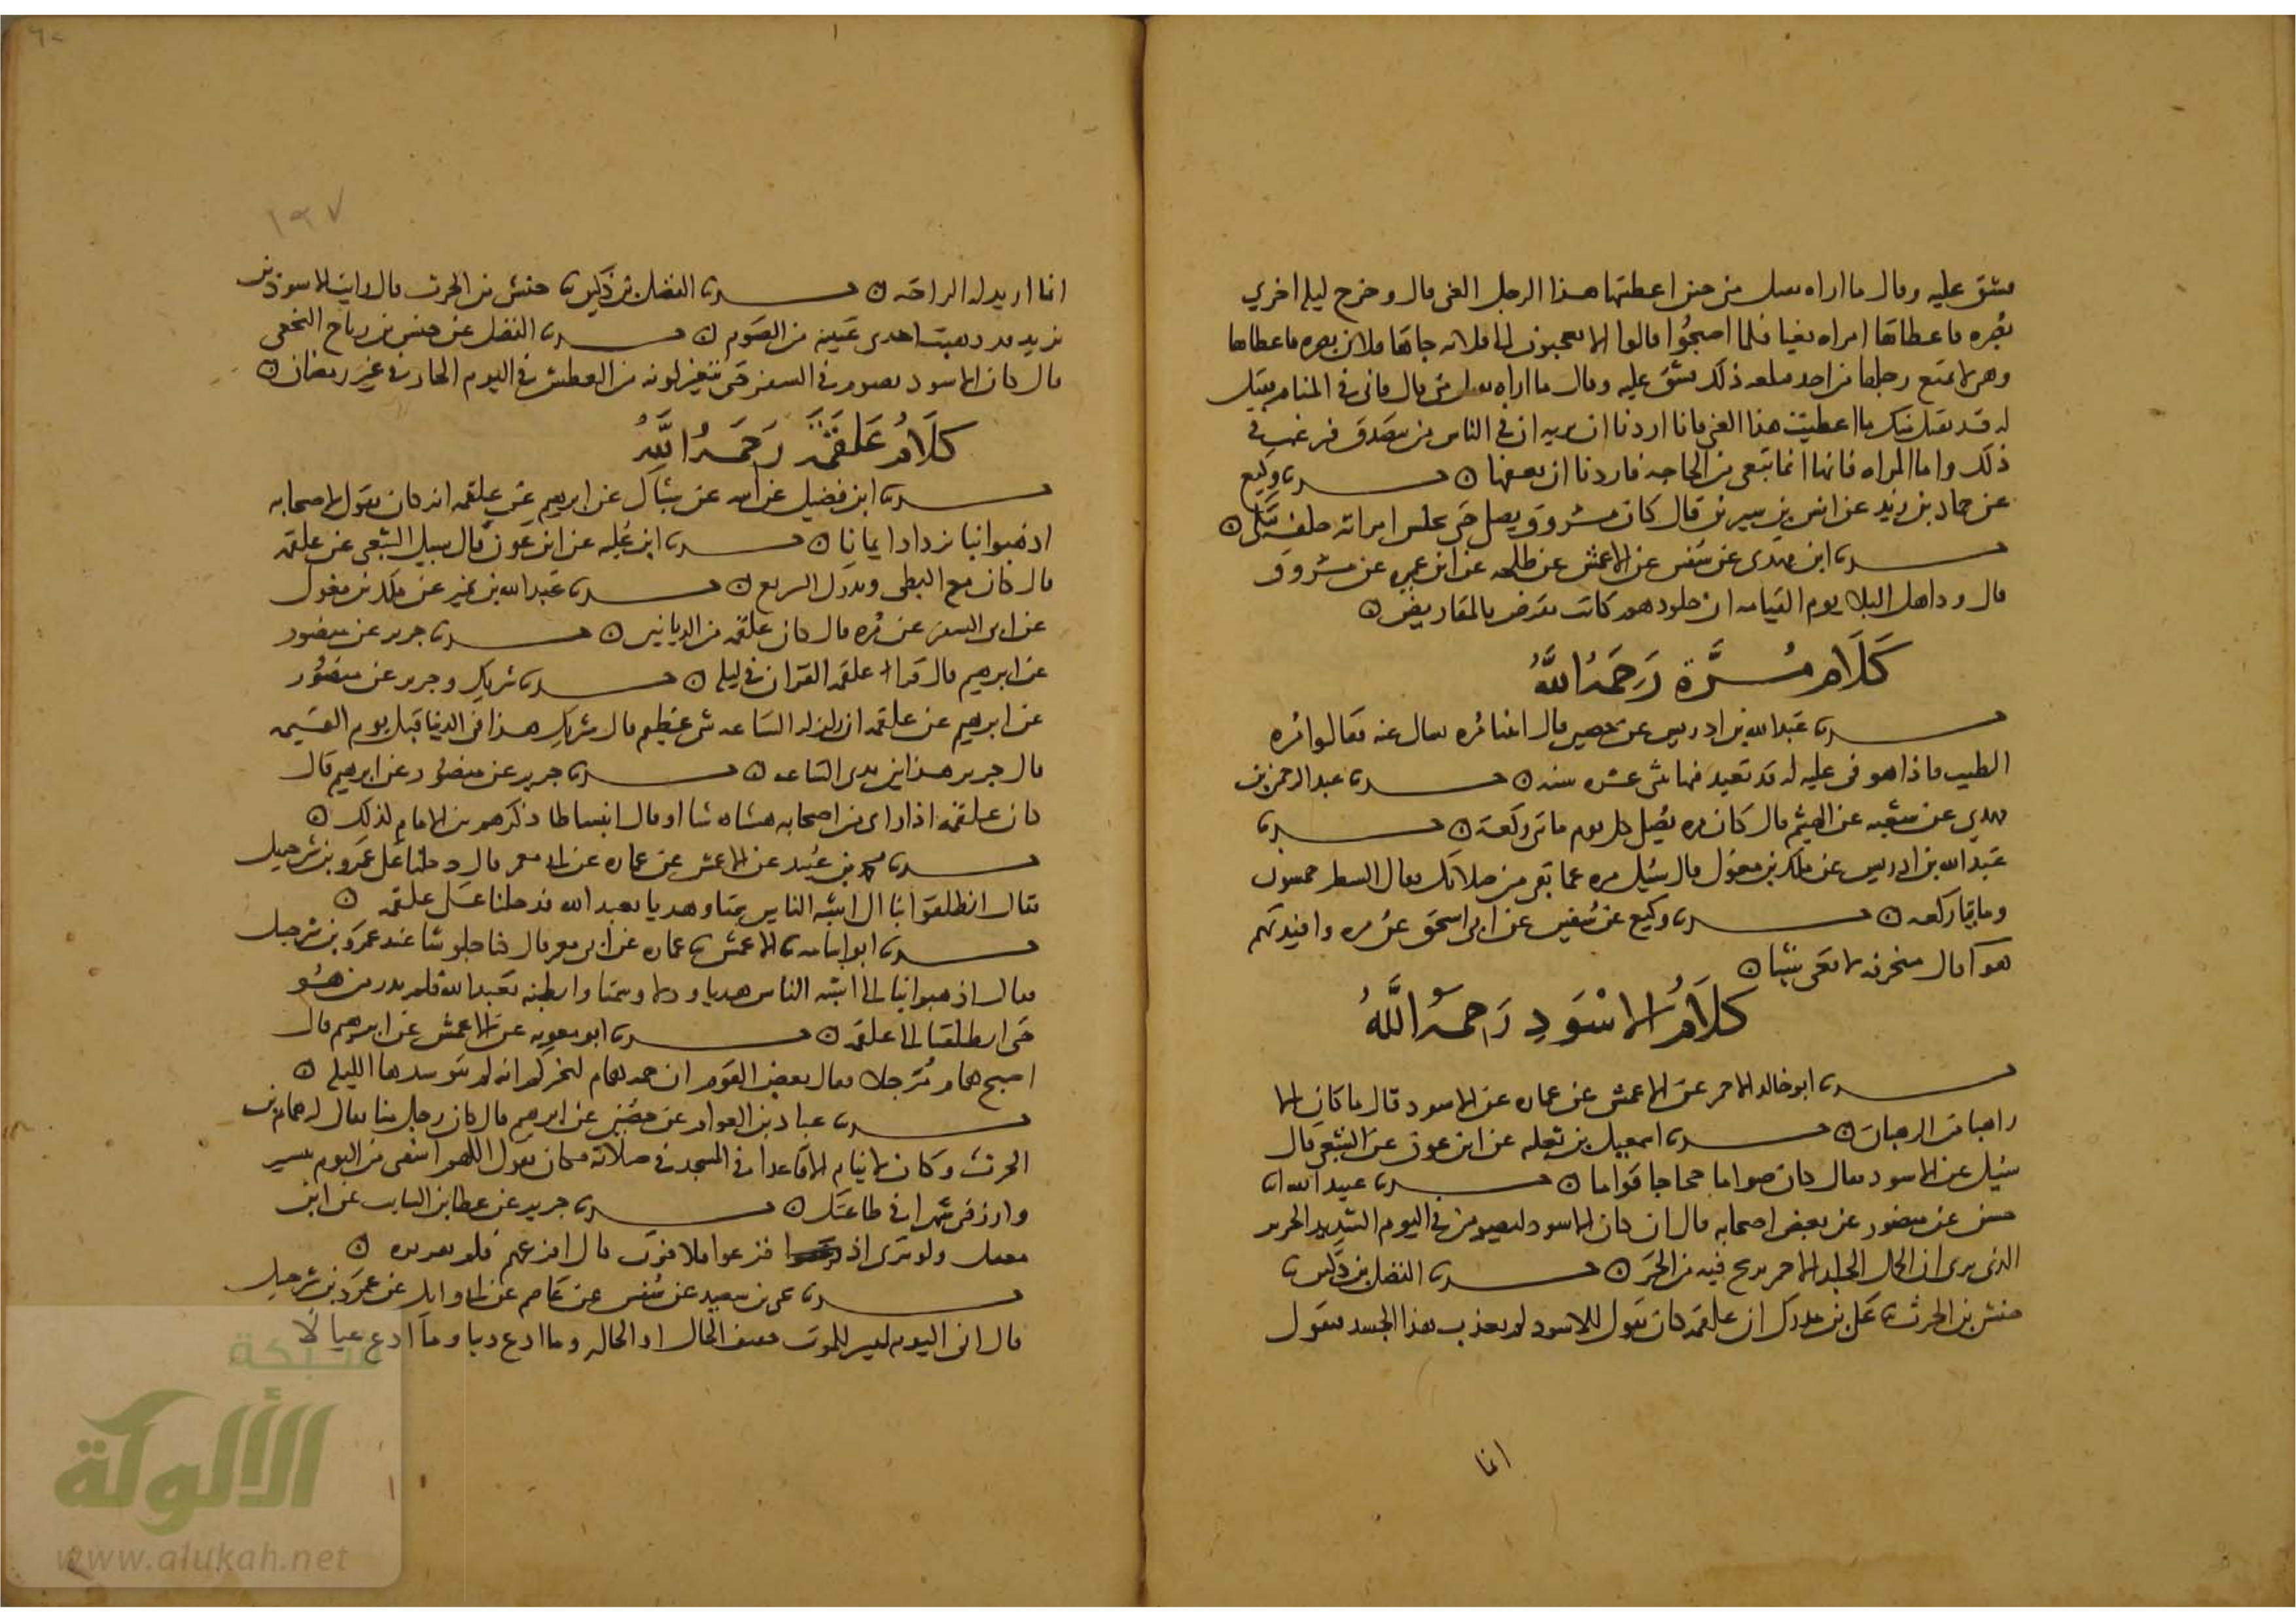 فشق عليه وقال ما اراه يقبل مني حين اعطيتها هذا الرجل الغني قال وخرج ليلة اخري
بصره فاعطاها امراه بغيا فلما اصبحوا قالوا الا تعجبون الى فلانه جاها فلان بصره فاعطاها
وهي لا تمنع رجلها من احد فبلغه ذلك فشق عليه وقال ما اراه تقبل مني قال فاتي في المنام فقيل
له قد تقبل منك ما اعطيت هذا الغني فانا اردنا ان نريه ان في الناس من يتصدق فيرغب في
ذلك واما المراه فانها انما تبغي من الحاجه فاردنا ان نعفها ن حدثنا وكيع
عن حماد بن زيد عن انس بن سيرين قال كان مسروق يصلي حتى تجلس امراته خلفه تبكي ن
حدثنا ابن مهدي عن سفين عن الاعمش عن طلحه عن ابن عميره عن مسروق
قال ود اهل البلا يوم القيامه ان جلودهم كانت تقرض بالمقاريض ن
كلام مرة رحمه الله
حدثنا عبد الله بن ادريس عن حصين قال اتينا مره نسال عنه فقالوا مره
الطيب فاذا هو في عليه له قد تعبد فيها ثنتي عشره سنه ن حدثنا عبد الرحمن بن
مهدي عن شعبه عن الهيثم قال كان مره يصلي كل يوم مائتي ركعة ن حدثنا
عبد الله بن ادريس عن ملك بن مغول قال سئل مره عما بقي من صلاتك فقال الشطر خمسون
ومايتا ركعه ن حدثنا وكيع عن سفين عن ابي اسحق عن مره وافيدتهم
هوا قال منخرقه لا تعي شيا ن
كلام الاسود رحمه الله
حدثنا ابو خالد الاحمر عن الاعمش عن عماره عن الاسود قال ما كان الا
راهبا من الرهبان ن حدثنا اسمعيل بن علية عن ابن عون عن الشعبي قال
سئل عن الاسود فقال كان صواما حجاجا قواما ن حدثنا عبيد الله انا
حسن عن منصور عن بعض اصحابه قال ان كان الاسود ليصوم في اليوم الشديد الحر
الذي يرى ان الجمل الجلد الاحمر يرنح فيه من الحر ن حدثنا الفضل بن دكين نا
حنش بن الحرث نا علي بن مدرك ان علقمه كان يقول للاسود لم تعذب هذا الجسد فيقول
انما
١٩٧
انما اريد له الراحه ن حدثنا الفضل بن دكين نا حنش بن الحرث قال رايت الاسود بن
يزيد قد ذهبت احدى عينيه من الصوم ن حدثنا الفضل عن حنش بن رياح النخعي
قال كان الاسود يصوم في السفر حتى يتغير لونه من العطش في اليوم الحار في غير رمضان ن
كلام علقمة رحمه الله
حدثنا ابن فضيل عن ابيه عن شباك عن ابرهيم عن علقمه انه كان يقول لاصحابه
اذهبوا بنا نزداد ايمانا ن حدثنا ابن علية عن ابن عون قال سئل الشعبي عن علقمه
قال كان مع البطي ويدرك السريع ن حدثنا عبد الله بن نمير عن ملك بن مغول
عن ابي السفر عن مره قال كان علقمه من الربانيين ن حدثنا جرير عن منصور
عن ابرهيم قال قرا علقمه القران في ليله ن حدثنا شريك وجرير عن منصور
عن ابرهيم عن علقمه ان زلزله الساعه شي عظيم قال شريك هذا في الدنيا قبل يوم القيمه
قال جرير هذا بين يدي الساعه ن حدثنا جرير عن منصور عن ابرهيم قال
كان علقمه اذا راى من اصحابه هشاشا او قال انبساطا ذكرهم بين الايام لذلك ن
حدثنا محمد بن عبيد عن الاعمش عن عماره عن ابي معمر قال دخلنا على عمرو بن شرحبيل
فقال انطلقوا بنا الى اشبه الناس سمتا وهديا بعبد الله فدخلنا على علقمه ن
حدثنا ابو اسامه نا الاعمش نا عماره عن ابي معمر قال كنا جلوسا عند عمرو بن شرحبيل
فقال اذهبوا بنا الى اشبه الناس هديا ودلا وسمتا وابطنه بعبد الله فلم ندر من هو
حتى انطلقنا الى علقمه ن حدثنا ابو معويه عن الاعمش عن ابرهيم قال
اصبح همام مترجلا فقال بعض القوم ان جمه همام لتخبركم انه لم يتوسدها الليله ن
حدثنا عباد بن العوام عن حصين عن ابرهيم قال كان رجل منا يقال له همام بن
الحرث وكان لا ينام الا قاعدا في المسجد في صلاته فكان يقول اللهم اشفني من النوم بيسير
وارزقني سهرا في طاعتك ن حدثنا جرير عن عطا بن السايب عن ابن
معقل ولو ترى اذ فزعوا فلا فوت قال افزعهم فلم يفوتوه ن
حدثنا عمر بن سعيد عن سفين عن عاصم عن ابي وايل عن عمرو بن شرحبيل
قال اني اليوم لميسر للموت خفيف الحال او الحاله وما ادع دينا وما ادع عيالا
شبكة
الألوكة
www.alukah.net